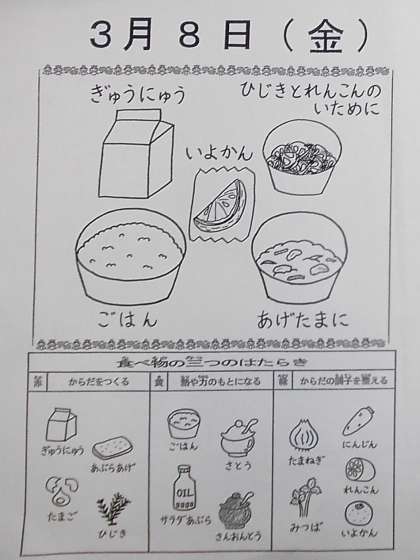 3月8日(金)
ぎゅうにゅう
ひじきとれんこんの
いために
いよかん
ごはん
あげたまに
食べ物の三つのはたらき
赤 からだをつくる
黄 熱や力のもとになる
緑 からだの調子を整える
ぎゅうにゅう
あぶらあげ
たまご
ひじき
ごはん
さとう
OIL
サラダあぶら
さんおんとう
たまねぎ
にんじん
れんこん
みつば
いよかん